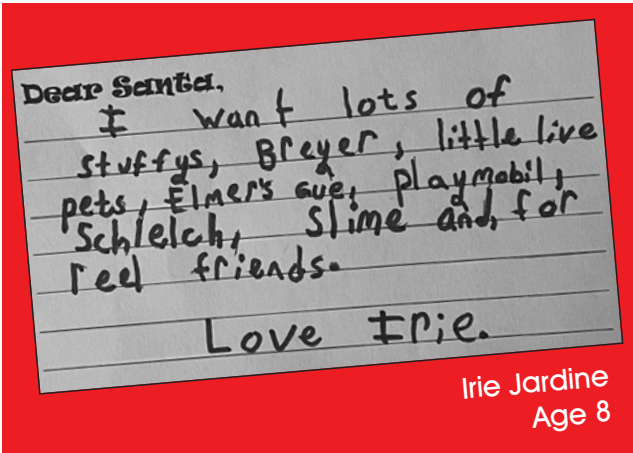 Dear Santa,
I want lots of
stuffys, Breyer, little live
pets, Elmer's gue, playmobil,
Schlelch, slime and, for
reel friends.
Love Irie.
Irie Jardine
Age 8